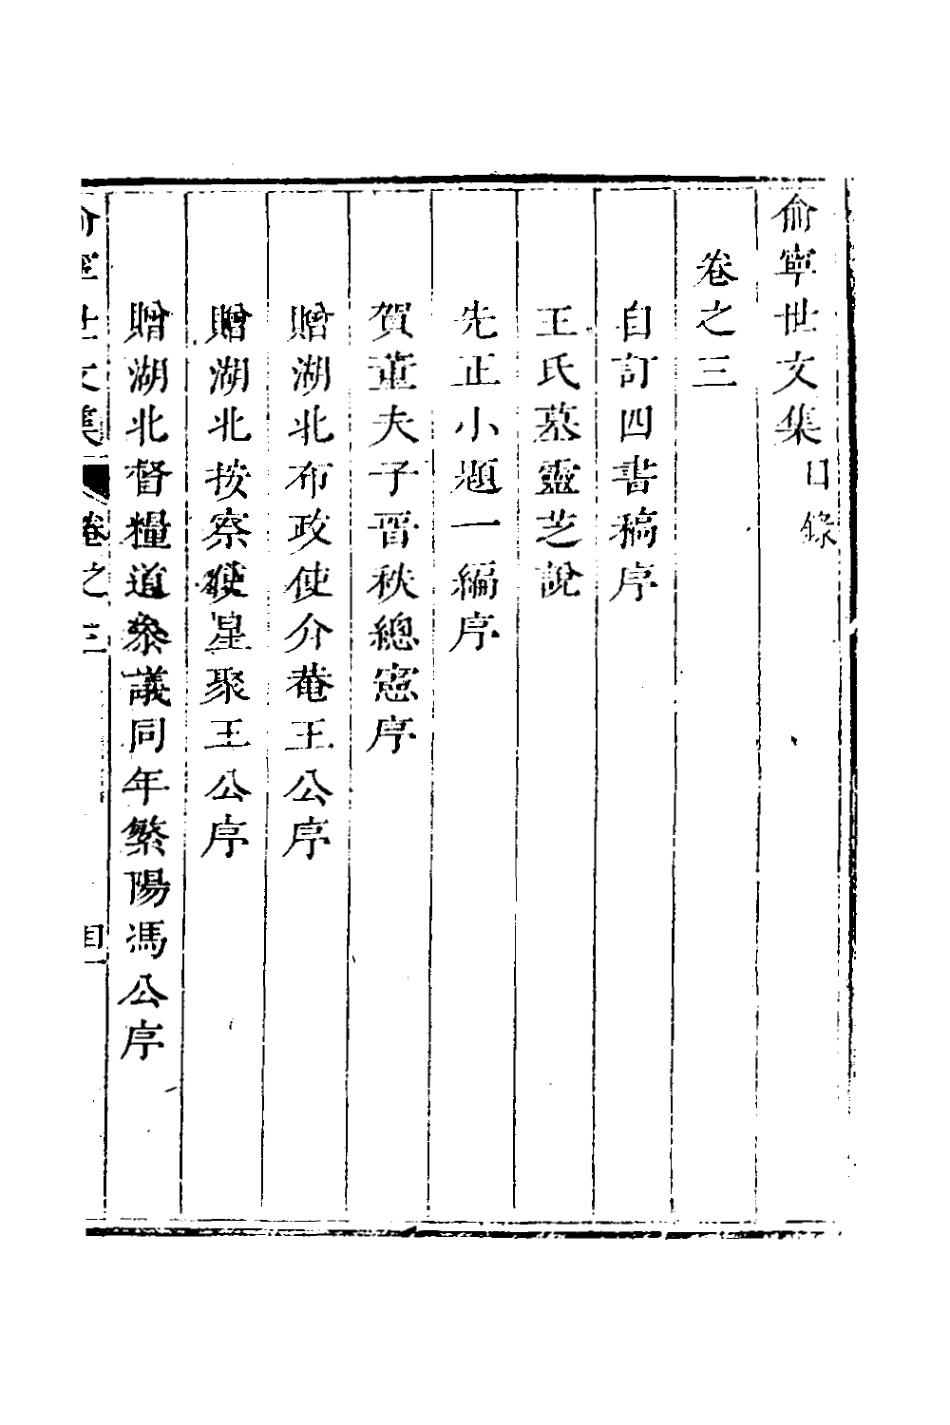 俞寧世文集目錄
卷之三
自訂四書稿序
王氏墓靈芝說
先正小題一編序
賀董夫子晋秩總憲序
贈湖北布政使介菴王公序
贈湖北按察使星聚王公序
贈湖北督糧道叅議同年繁陽馮公序
俞寧世文集 卷之三 目一